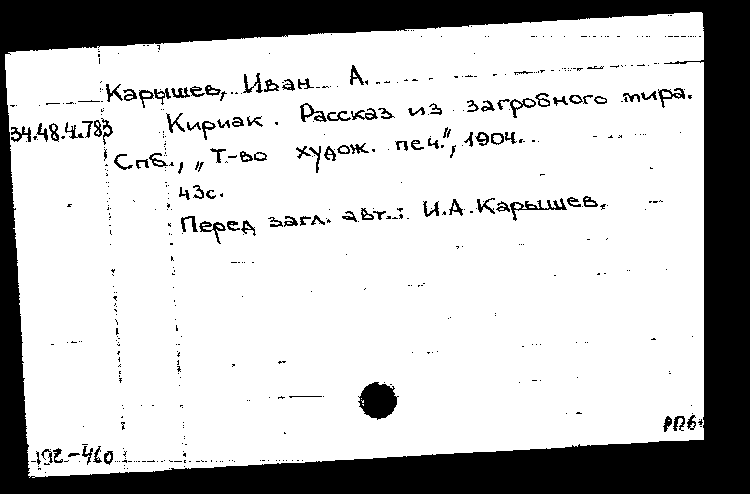 Карышев, Иван А.
34.48.4.783 Кириак. Рассказ из загробного мира.
Спб., „Т-во худож. печ.", 1904.
43с.
Перед загл. авт.: И.А.Карышев.
192-460